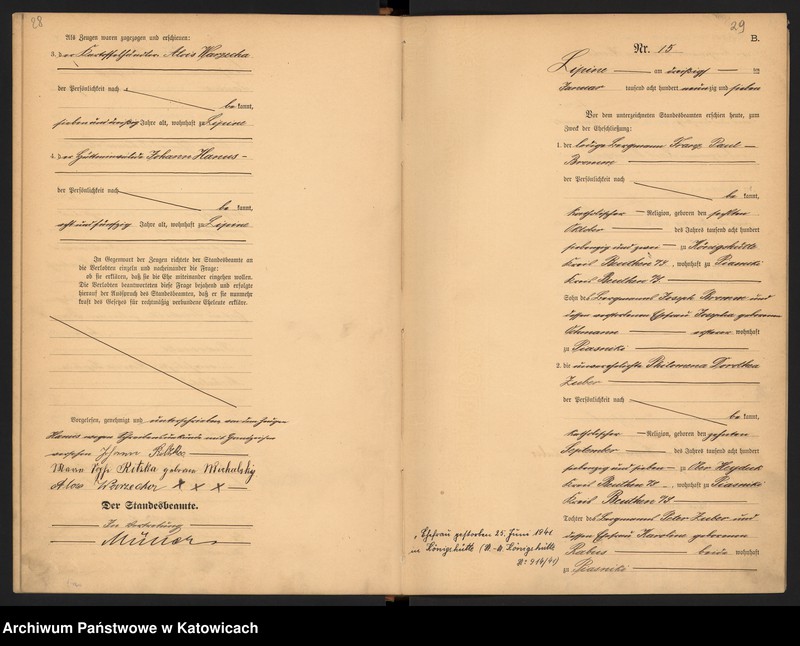 28
Als Zeugen waren zugezogen und erschienen:
3. der Kartoffelhändler Alois Warzecha
der Persönlichkeit nach
be kannt,
sieben und dreißig Jahre alt, wohnhaft zu Lipine
4. der Hütteninvalide Johann Hanus
der Persönlichkeit nach
be kannt,
acht und fünfzig Jahre alt, wohnhaft zu Lipine
In Gegenwart der Zeugen richtete der Standesbeamte an
die Verlobten einzeln und nacheinander die Frage:
ob sie erklären, daß sie die Ehe miteinander eingehen wollen.
Die Verlobten beantworteten diese Frage bejahend und erfolgte
hierauf der Ausspruch des Standesbeamten, daß er sie nunmehr
kraft des Gesetzes für rechtmäßig verbundene Eheleute erkläre.
Vorgelesen, genehmigt und unterschrieben von dem Zeugen
Hanus wegen Schreibensunkunde mit Handzeichen
versehen Johann
Maria geborene Michalsky
Alois Warzecha x x x
Der Standesbeamte.
In Vertretung
Müller
29
B.
Nr. 15
Lipine am dreißigsten
Januar tausend acht hundert neunzig und sieben
Vor dem unterzeichneten Standesbeamten erschien heute, zum
Zweck der Eheschließung:
1. der ledige Bergmann Franz Paul
der Persönlichkeit nach
be kannt,
katholischer Religion, geboren den sechsten
Oktober des Jahres tausend acht hundert
siebenzig und zwei zu Königshütte
Kreis Beuthen, wohnhaft zu Piasniki
Kreis Beuthen
Sohn des Bergmanns Joseph und
dessen verstorbenen Ehefrau Josepha geborenen
wohnhaft
zu Piasniki
2. die unverehelichte Philomena Dorothea
Zuber
der Persönlichkeit nach
be kannt,
katholischer Religion, geboren den
September des Jahres tausend acht hundert
siebenzig und sieben zu Ober Heyduk
Kreis Beuthen, wohnhaft zu Piasniki
Kreis Beuthen
Tochter des Bergmanns Peter Zuber und
dessen Ehefrau Karoline geborenen
beide wohnhaft
zu Piasniki
Ehefrau gestorben 25. Juni 1941
in Königshütte (St.-A. Königshütte
Nr 914/41)
Archiwum Państwowe w Katowicach